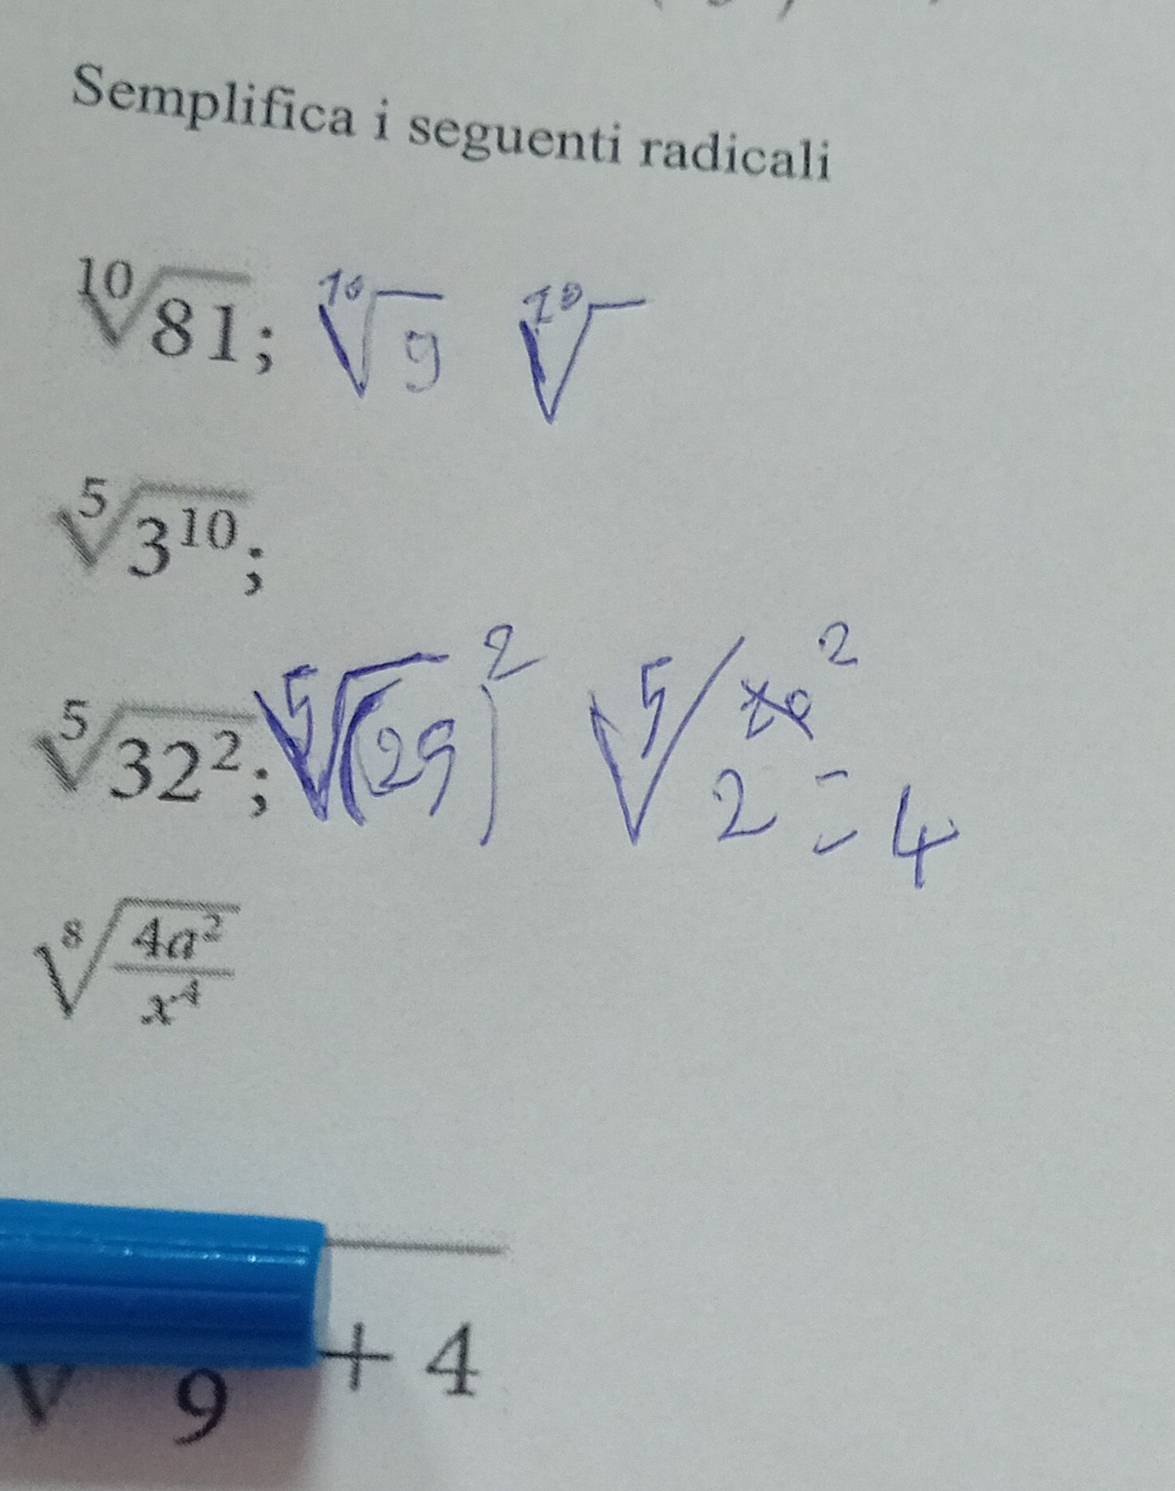 Semplifica i seguenti radicali
¹⁰√81; ¹⁰√9 ¹⁰√
⁵√3¹⁰;
⁵√32²; ⁵√(25)² ⁵√ 2 2 = 4
⁸√4a²/x⁴
√ 9 + 4